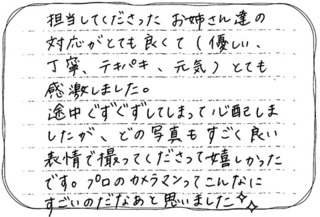 担当してくださった お姉さん達の
対応がとても良くて(優しい、
丁寧、テキパキ、元気)とても
感激しました。
途中ぐずぐずしてしまって心配しま
したが、どの写真もすごく良い
表情で撮ってくださって嬉しかった
です。プロのカメラマンってこんなに
すごいのだなあと思いました✧✧